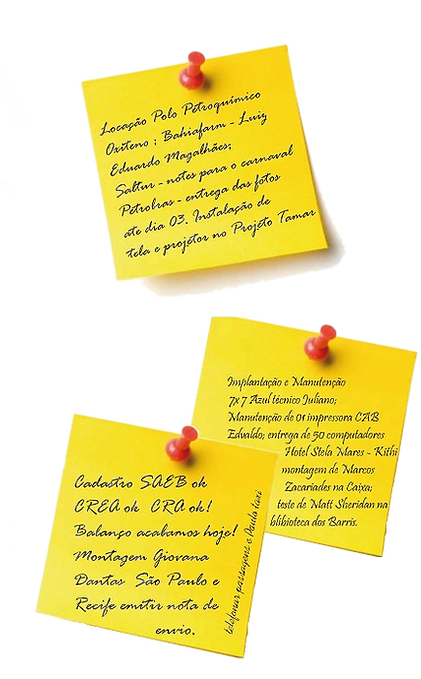 Locação Polo Petroquímico
Oxiteno ; Bahiafarm - Luiz
Eduardo Magalhães;
Saltur - notes para o carnaval
Petrobras - entrega das fotos
ate dia 03. Instalação de
tela e projetor no Projeto Tamar
Implantação e Manutenção
7x7 Azul técnico Juliano;
Manutenção de 01 impressora CAB
Edvaldo; entrega de 50 computadores
Hotel Stela Mares - Kithi
montagem de Marcos
Zacariades na Caixa;
teste de Matt Sheridan na
blibioteca dos Barris.
Cadastro SAEB ok
CREA ok CRA ok!
Balanço acabamos hoje!
Montagem Giovana
Dantas São Paulo e
Recife emitir nota de
envio.
telefonar passagens a Paulo taxi